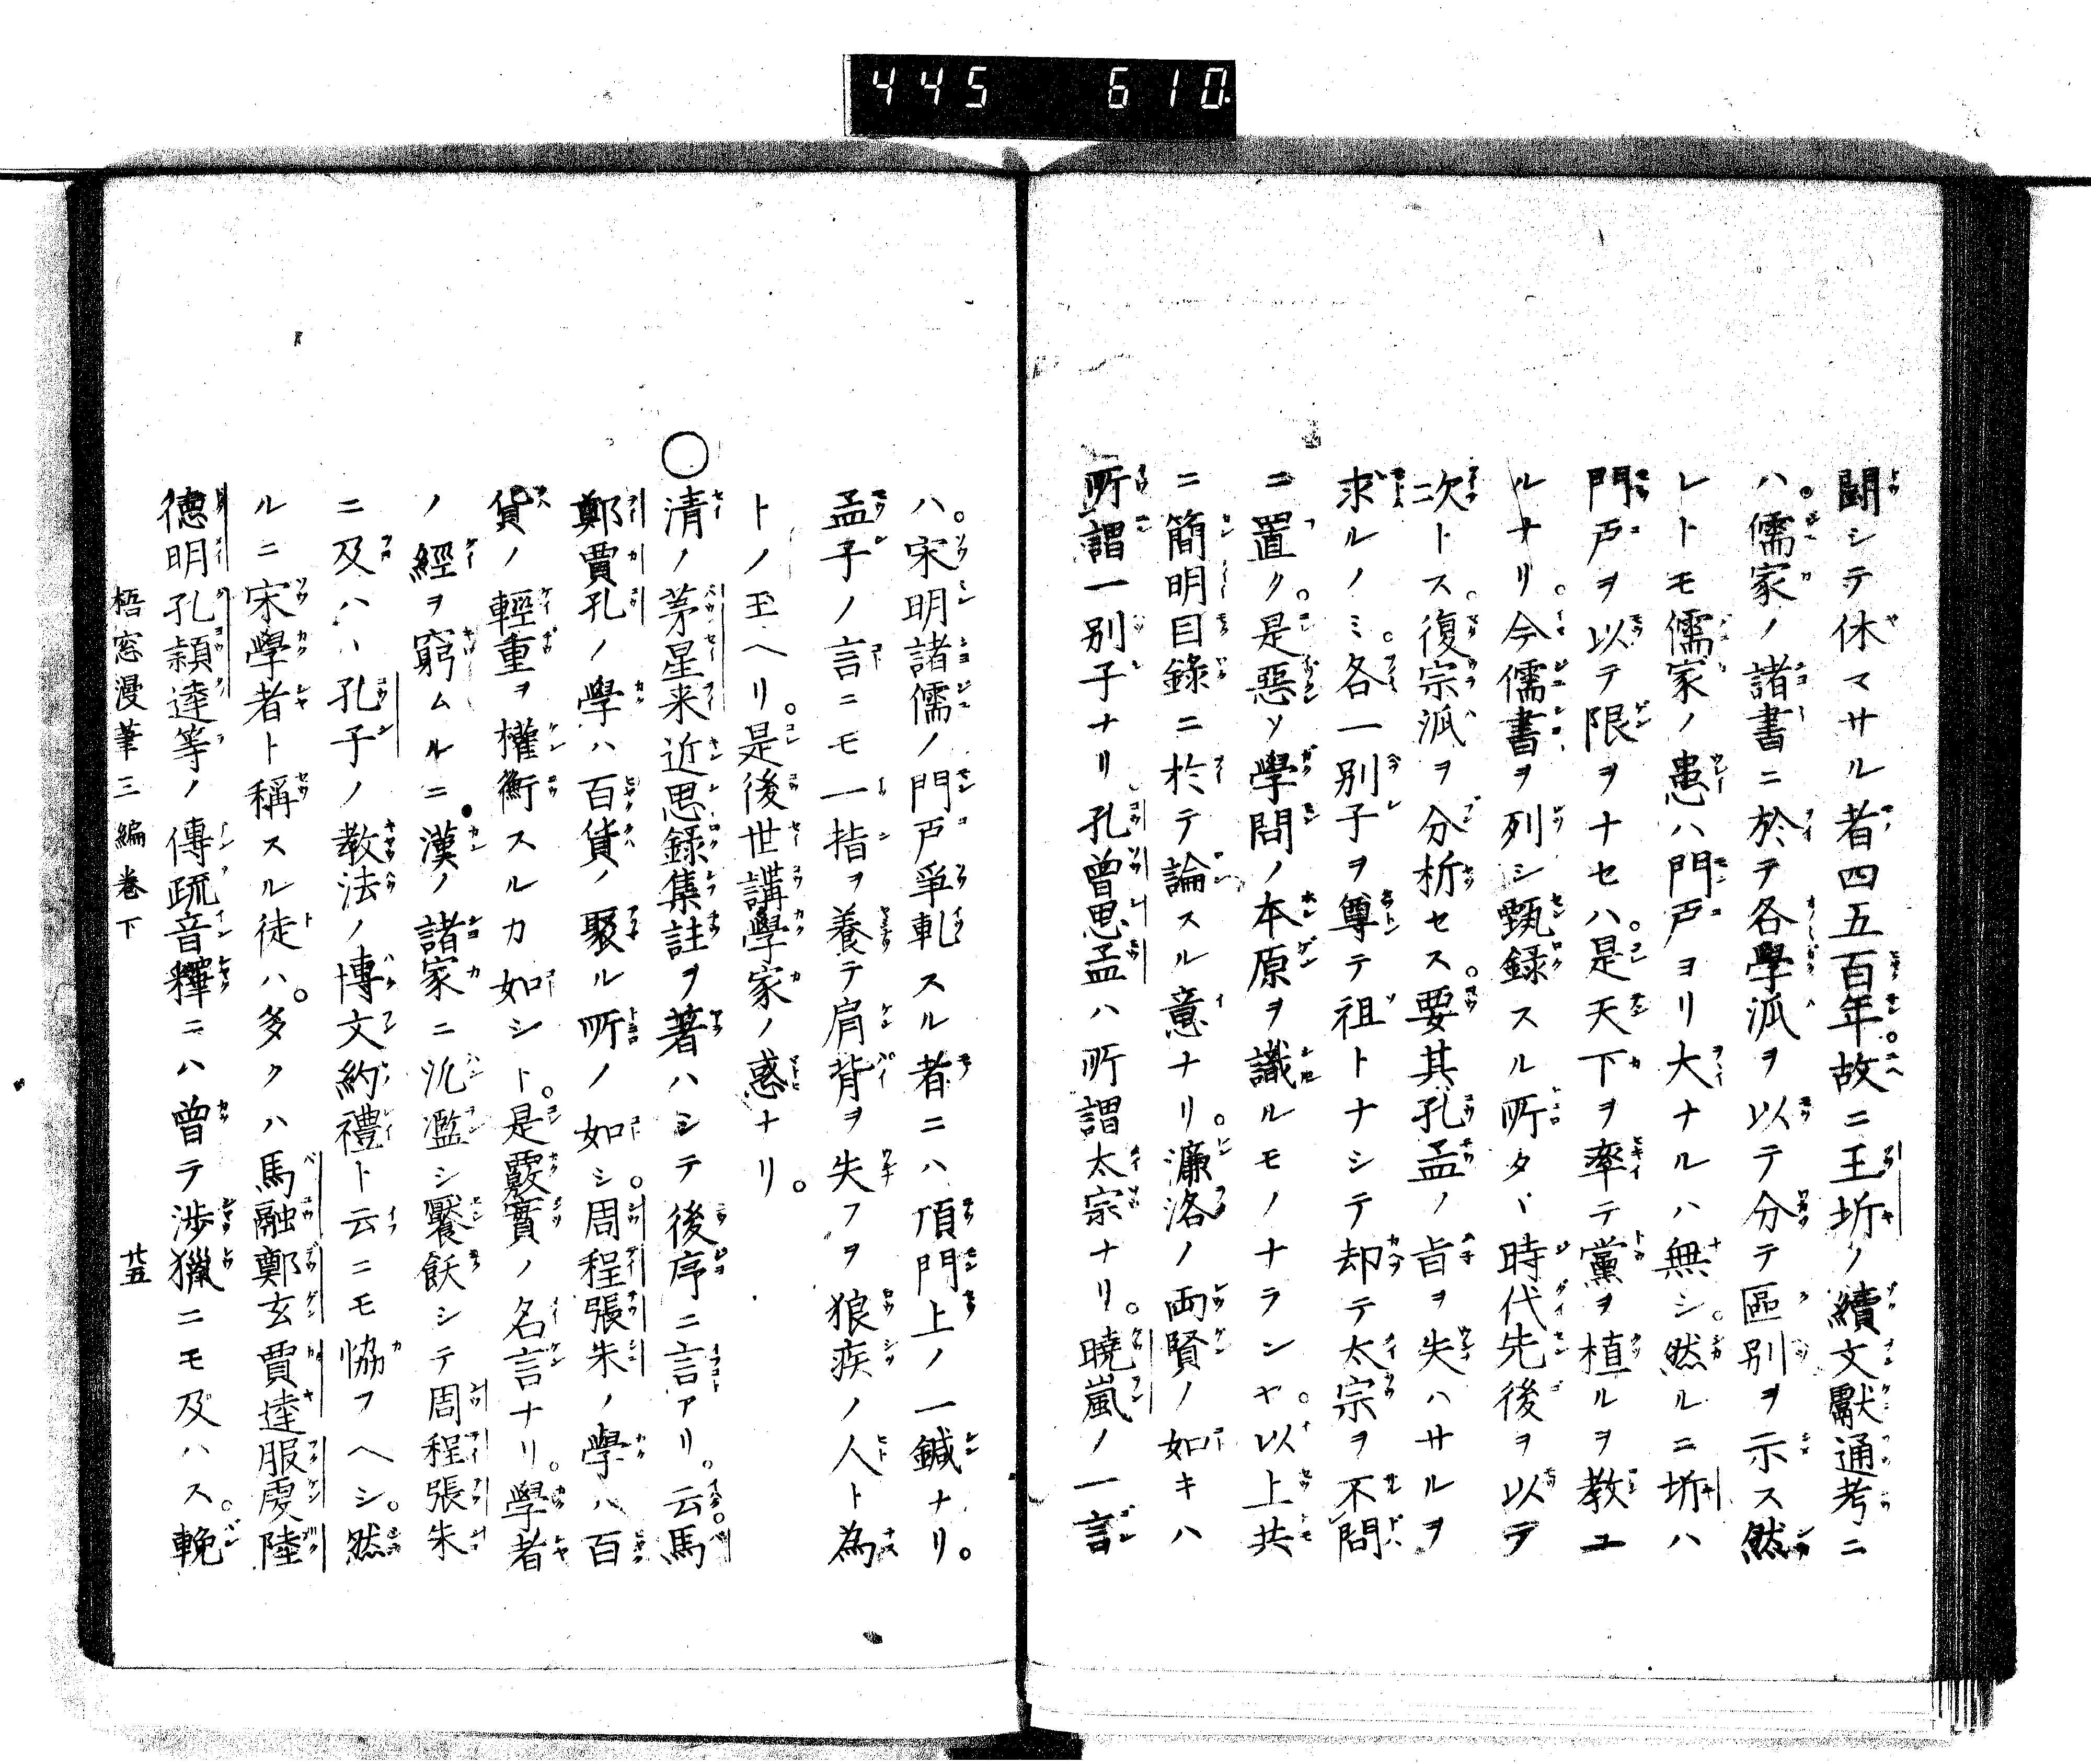 445 610
闘シテ休マサル者四五百年。故ニ王圻ノ續文獻通考ニ
ハ。儒家ノ諸書ニ於ヲ各學派ヲ以テ分テ區別ヲ示ス然
レトモ儒家ノ患ハ門戸ヨリ大ナルハ無シ。然ルニ圻ハ
門戸ヲ以テ限ヲナセハ。是天下ヲ率テ黨ヲ植ルヲ教ユ
ルナリ。今儒書ヲ列シ甄録スル所タヾ時代先後ヲ以テ
次トス。復宗派ヲ分析セス。要其孔孟ノ旨ヲ失ハサルヲ
求ルノミ。各一別子ヲ尊テ祖トナシテ却テ太宗ヲ不問
ニ置ク。是惡ソ學問ノ本原ヲ識ルモノナランヤ。以上共
ニ簡明目錄ニ於テ論スル意ナリ。濂洛ノ両賢ノ如キハ
所謂一別子ナリ。孔曾思孟ハ所謂太宗ナリ。曉嵐ノ一言
ハ。宋明諸儒ノ門戸爭軋スル者ニハ頂門上ノ一鍼ナリ。
孟子ノ言ニモ一指ヲ養テ肩背ヲ失フヲ狼疾ノ人ト為
トノ玉ヘリ。是後世講學家ノ惑ナリ。
○清ノ茅星来近思錄集註ヲ著ハシテ後序ニ言アリ。云。馬
鄭賈孔ノ學ハ百貨ノ聚ル所ノ如シ。周程張朱ノ學ハ百
貨ノ輕重ヲ權衡スルカ如シト。是覈實ノ名言ナリ。學者
ノ經ヲ窮ムルニ漢ノ諸家ニ氿濫シ饜飫シテ周程張朱
ニ及ハヽ孔子ノ教法ノ博文約禮ト云ニモ恊フヘシ。然
ルニ宋學者ト稱スル徒ハ。多クハ馬融鄭玄賈逵服虔陸
德明孔頴達等ノ傳疏音釋ニハ曾テ渉獵ニモ及ハス。輓
梧窓漫筆三編卷下 廿五